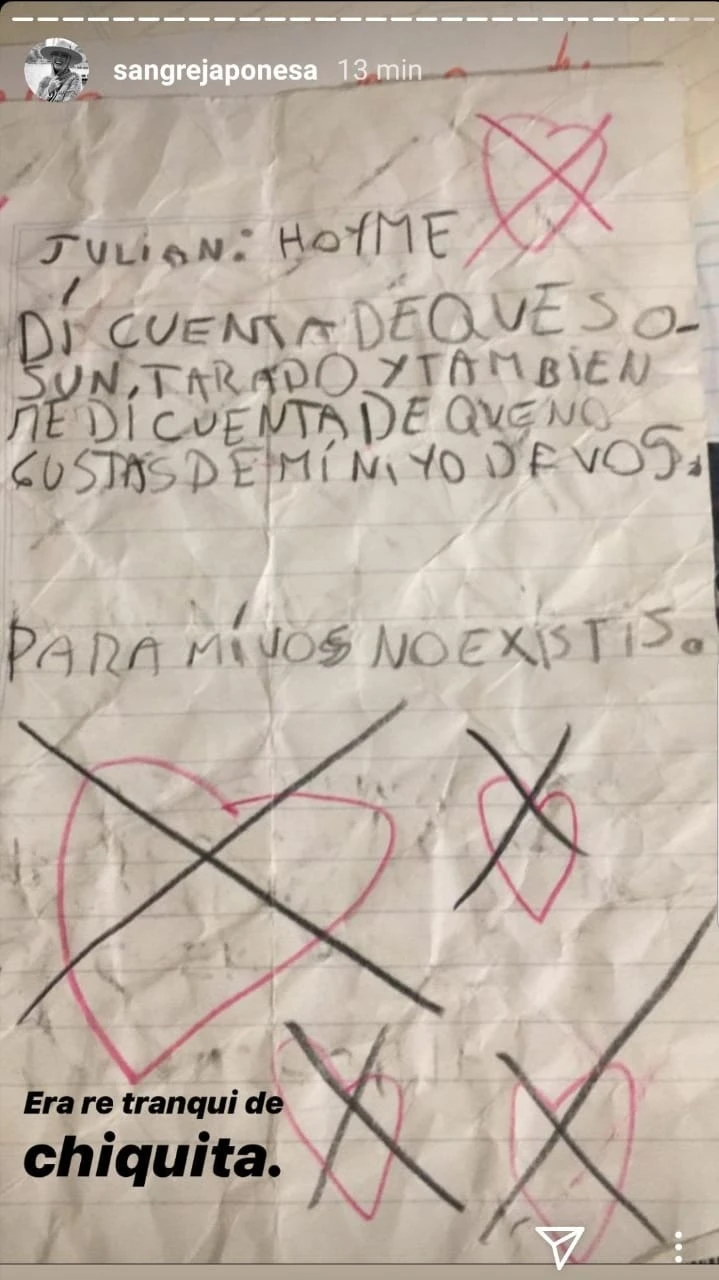 sangrejaponesa 13 min
JULIAN: HOY ME
DÍ CUENTA DE QUE SO-
S UN, TARADO Y TAMBIEN
ME DÍ CUENTA DE QUE NO
GUSTAS DE MÍ NI YO DE VOS.
PARA MÍ VOS NO EXISTIS.
Era re tranqui de
chiquita.